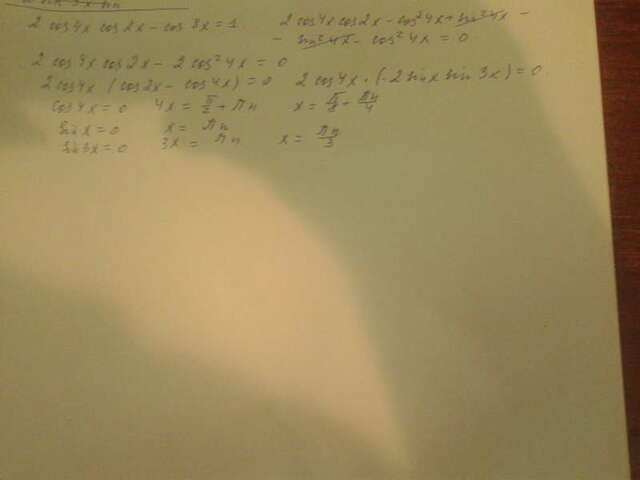 2 cos4x cos2x - cos 8x = 1. 2 cos4x cos2x - cos²4x + sin²4x -
- sin²4x - cos²4x = 0.
2 cos4x cos2x - 2 cos²4x = 0
2 cos4x (cos2x - cos4x) = 0 2 cos4x · (-2 sinx sin 3x) = 0.
cos4x = 0 4x = π/2 + πn x = π/8 + πn/4
sinx = 0 x = πn
sin3x = 0 3x = πn x = πn/3